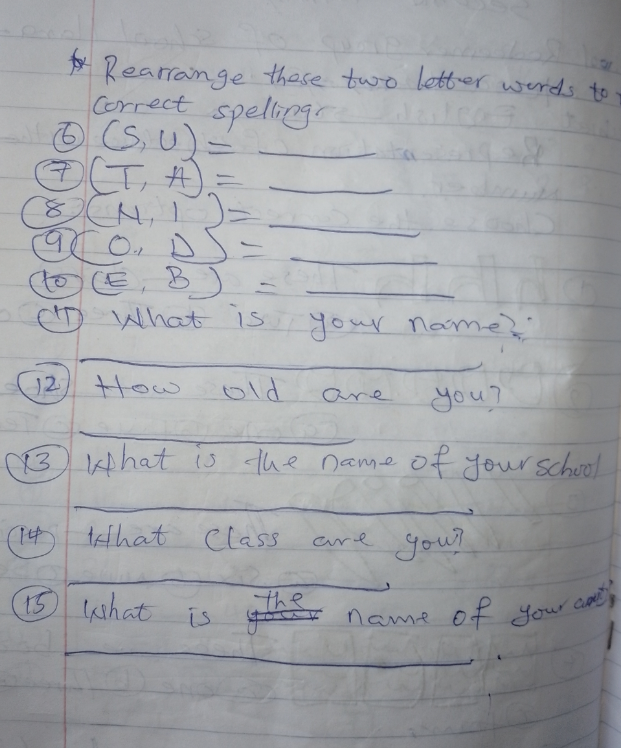 * Rearrange these two letter words to
correct spelling.
6 (S, U) = ________
7 (T, A) = ________
8 (N, I) = ________
9 (O, D) = ________
10 (E, B) = ________
11 What is your name?
12 How old are you?
13 What is the name of your school
14 What Class are you?
15 What is the name of your